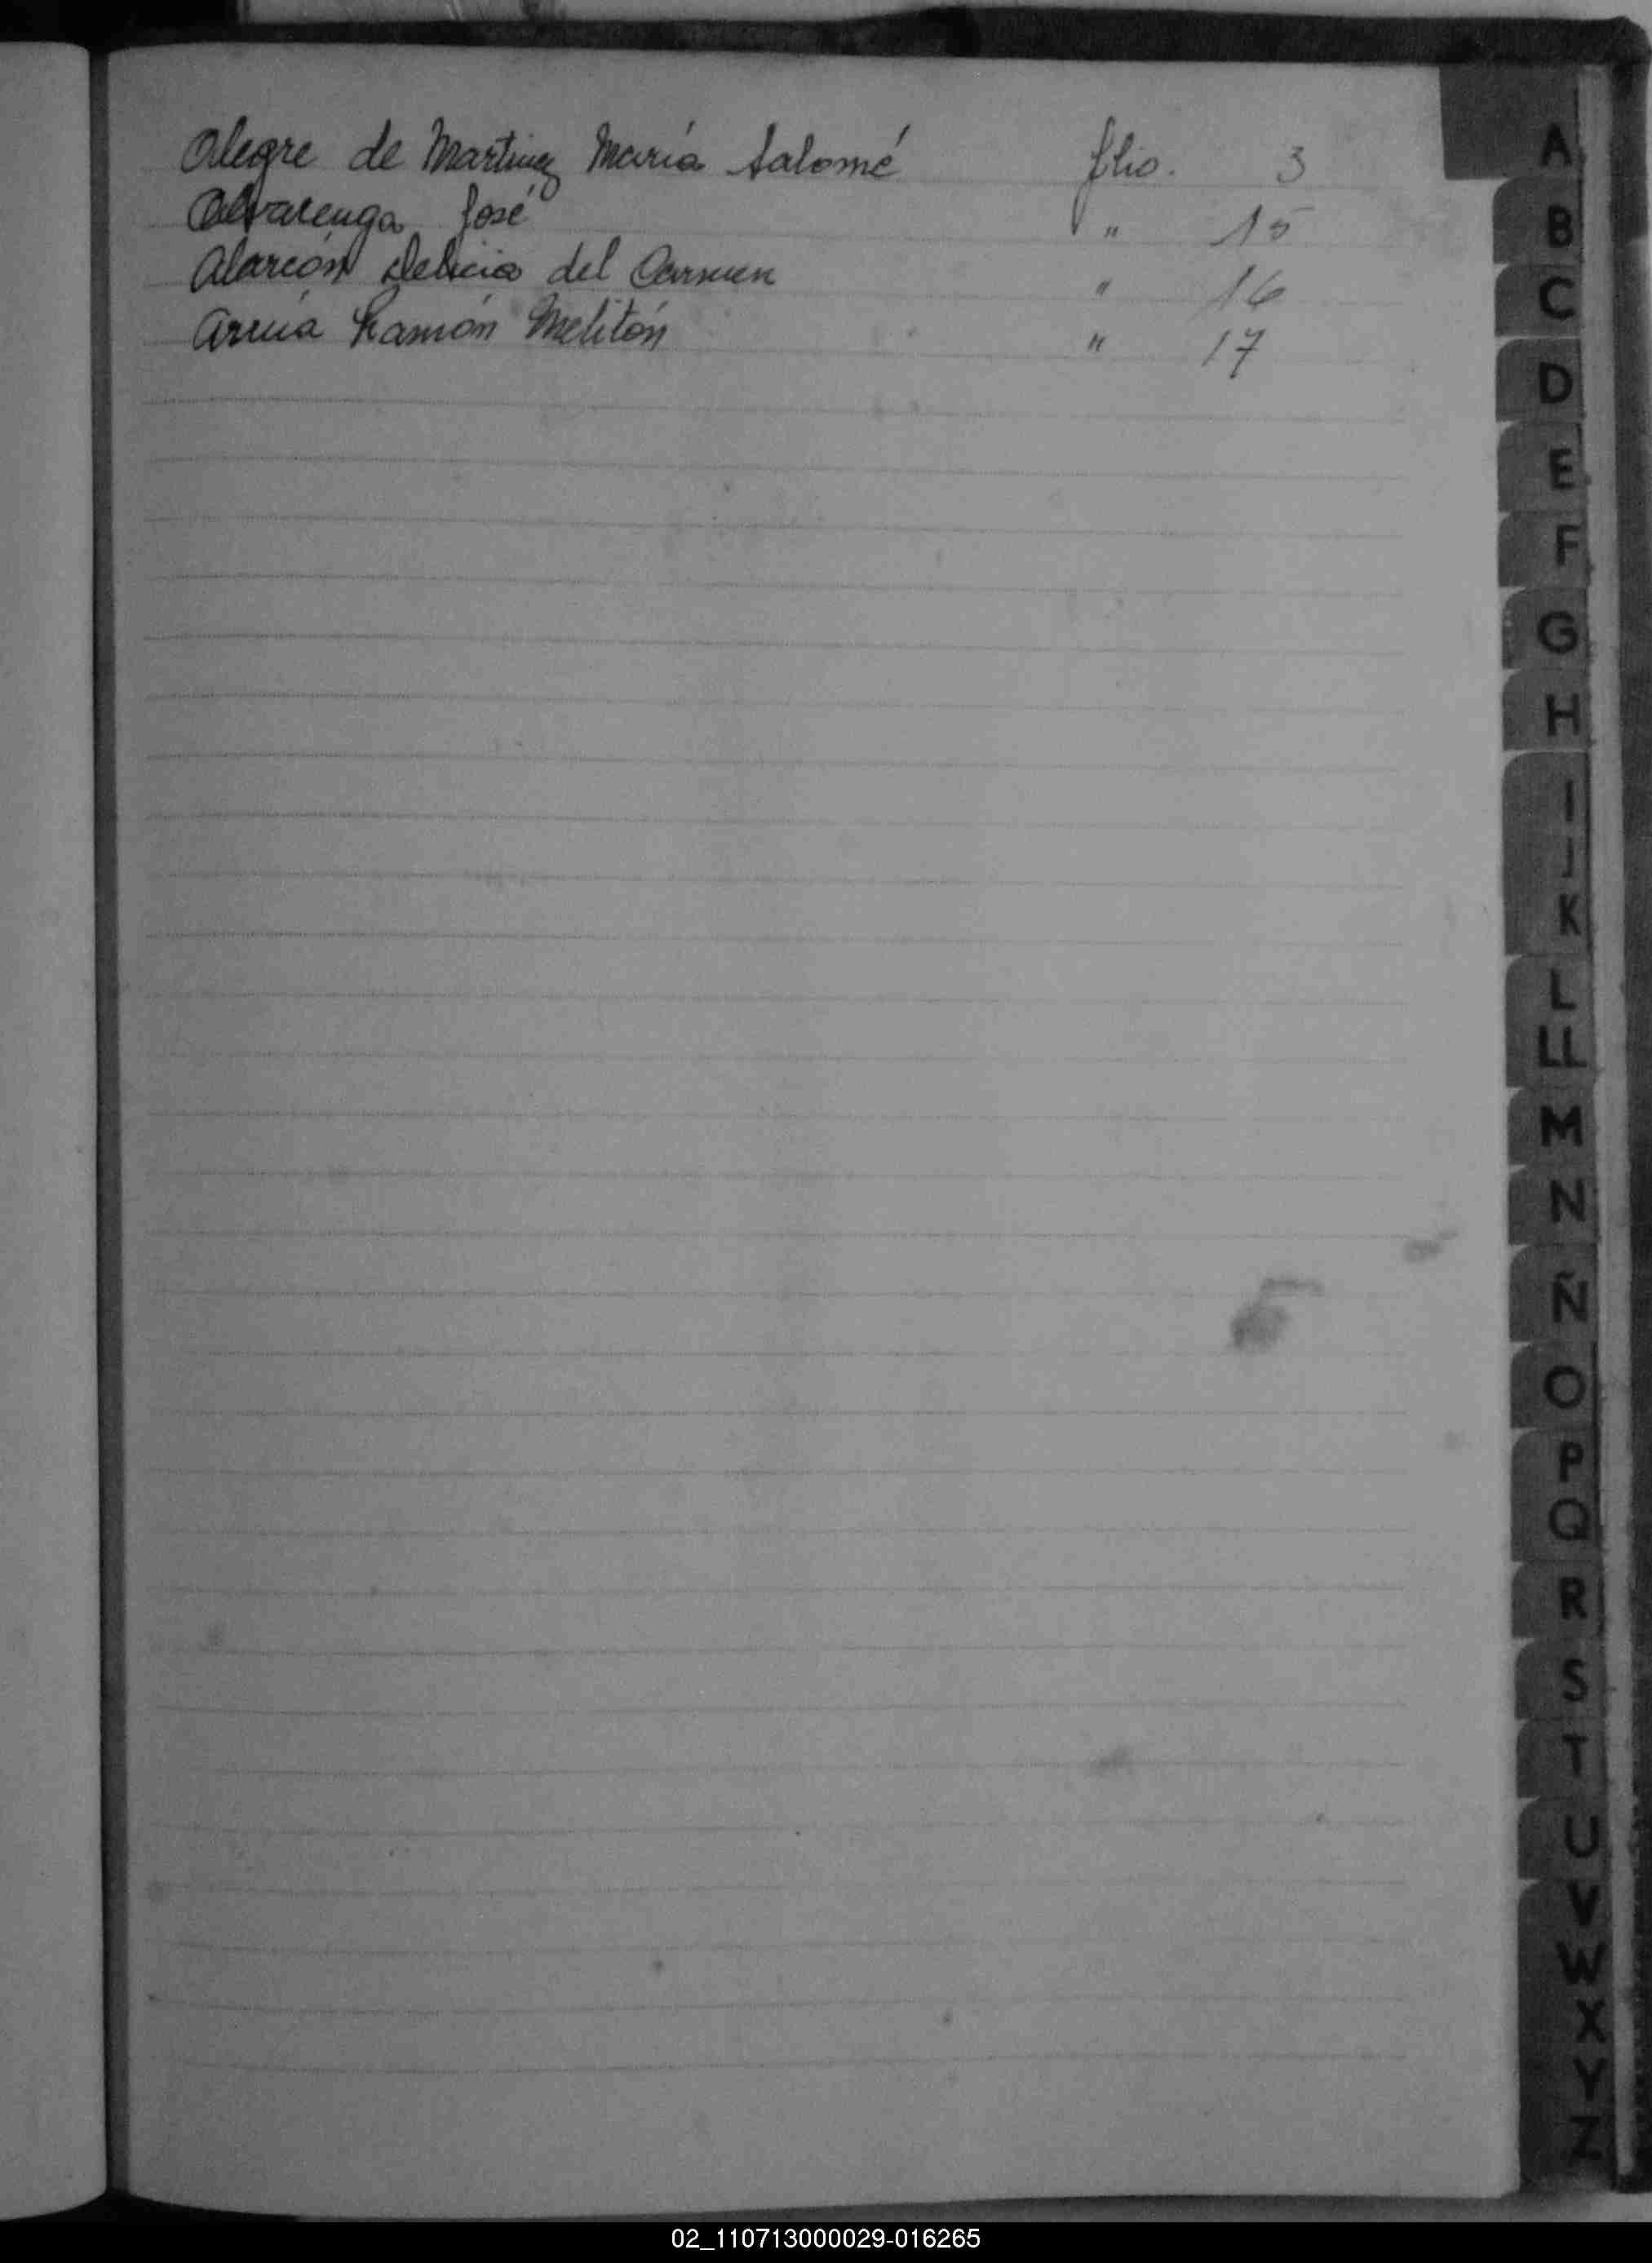 Alegre de Martinez María Salomé folio. 3
Alvarenga José " 15
Alarcón Delicia del Carmen " 16
Arrúa Ramón Melitón " 17
A
B
C
D
E
F
G
H
I
J
K
L
LL
M
N
Ñ
O
P
Q
R
S
T
U
V
W
X
Y
Z
02_110713000029-016265